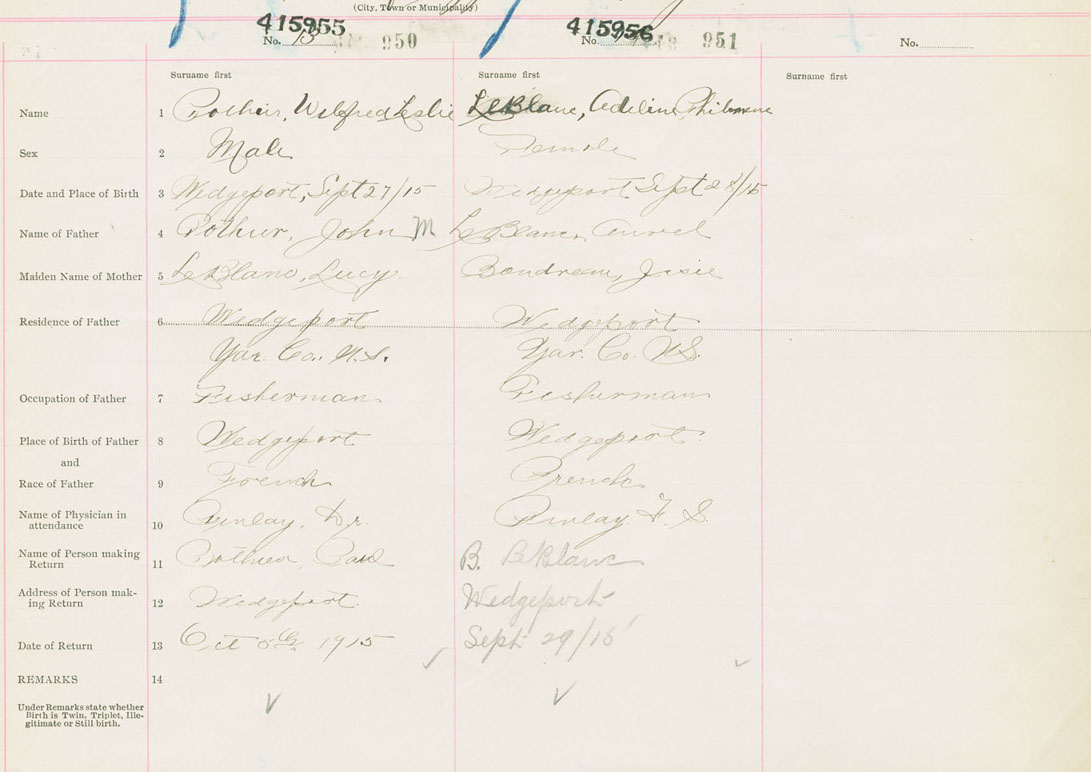 (City, Town or Municipality)
415955 415956
No. 13 950 No. 951 No.
Surname first Surname first Surname first
Name 1 Pothier, Wilfred Leslie LeBlanc, Adeline Philomene
Sex 2 Male Female
Date and Place of Birth 3 Wedgeport, Sept 27/15 Wedgeport Sept 28/15
Name of Father 4 Pothier, John M LeBlanc,
Maiden Name of Mother 5 LeBlanc, Lucy Boudreau, Josie
Residence of Father 6 Wedgeport Wedgeport
Yar. Co. N.S. Yar. Co. N.S.
Occupation of Father 7 Fisherman Fisherman
Place of Birth of Father 8 Wedgeport Wedgeport
and
Race of Father 9 French French
Name of Physician in
attendance 10 Dr. F. S.
Name of Person making
Return 11 Pothier, Paul B. LeBlanc
Address of Person mak-
ing Return 12 Wedgeport Wedgeport
Date of Return 13 Oct 1915 Sept 29/15
REMARKS 14
Under Remarks state whether
Birth is Twin, Triplet, Ille-
gitimate or Still birth.